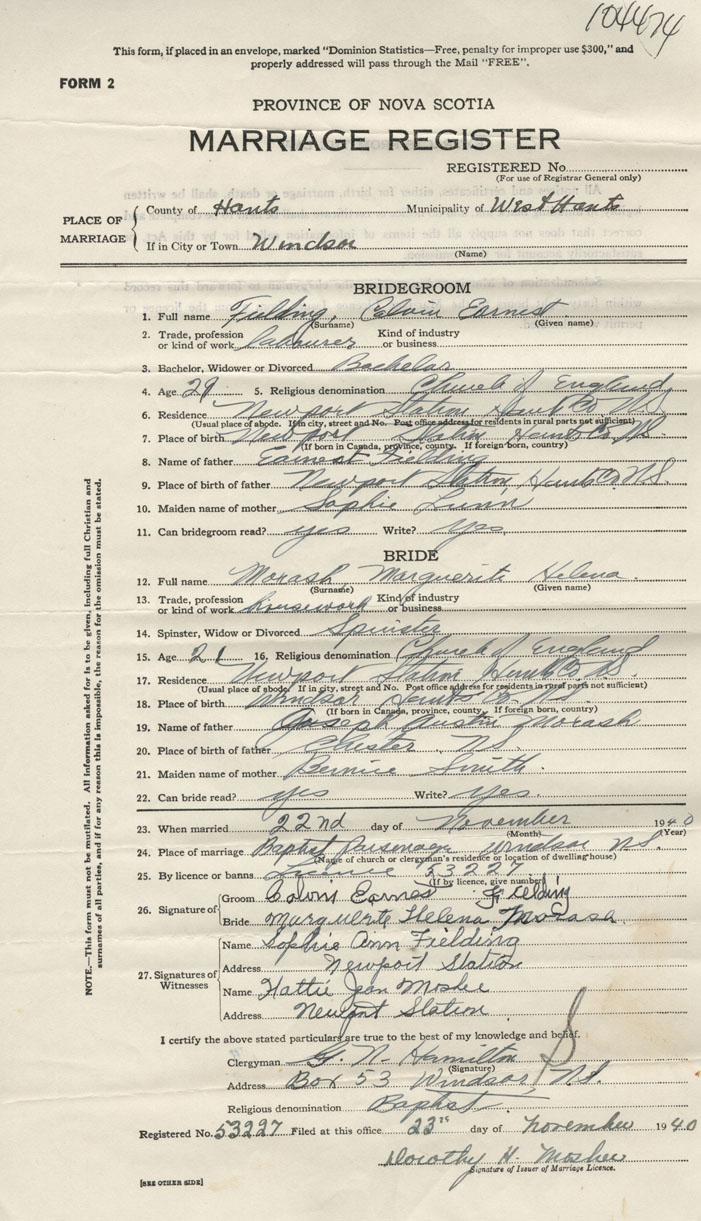 104474
This form, if placed in an envelope, marked "Dominion Statistics—Free, penalty for improper use $300," and
properly addressed will pass through the Mail "FREE".
FORM 2
PROVINCE OF NOVA SCOTIA
MARRIAGE REGISTER
REGISTERED No.
(For use of Registrar General only)
PLACE OF MARRIAGE
County of Hants Municipality of West Hants
If in City or Town Windsor
(Name)
BRIDEGROOM
1. Full name Fielding, Calvin Earnest
(Surname) (Given name)
2. Trade, profession or kind of work labourer Kind of industry or business
3. Bachelor, Widower or Divorced Bachelor
4. Age 29 5. Religious denomination Church of England
6. Residence Newport Station Hants Co. N.S.
(Usual place of abode. If in city, street and No. Post office address for residents in rural parts not sufficient)
7. Place of birth Newport Station Hants Co. N.S.
(If born in Canada, province, county. If foreign born, country)
8. Name of father Earnest Fielding
9. Place of birth of father Newport Station, Hants Co. N.S.
10. Maiden name of mother Sophie Lunn
11. Can bridegroom read? yes Write? yes
BRIDE
12. Full name Morash, Marguerite Helena
(Surname) (Given name)
13. Trade, profession or kind of work housework Kind of industry or business
14. Spinster, Widow or Divorced Spinster
15. Age 21 16. Religious denomination Church of England
17. Residence Newport Station Hants Co. N.S.
(Usual place of abode. If in city, street and No. Post office address for residents in rural parts not sufficient)
18. Place of birth Windsor Hants Co. N.S.
(If born in Canada, province, county. If foreign born, country)
19. Name of father Joseph Austin Morash
20. Place of birth of father Chester, N.S.
21. Maiden name of mother Bernice Smith
22. Can bride read? yes Write? yes
23. When married 22nd day of November 1940
(Month) (Year)
24. Place of marriage Baptist Parsonage Windsor N.S.
(Name of church or clergyman's residence or location of dwelling house)
25. By licence or banns Licence 53227
(If by licence, give number)
26. Signature of
Groom Calvin Earnest Fielding
Bride Marguerite Helena Morash
27. Signatures of Witnesses
Name Sophie Ann Fielding
Address Newport Station
Name Hattie Jean Mosher
Address Newport Station
I certify the above stated particulars are true to the best of my knowledge and belief.
Clergyman G. N. Hamilton
(Signature)
Address Box 53 Windsor, N.S.
Religious denomination Baptist
Registered No. 53227 Filed at this office 23rd day of November 1940
Dorothy H. Mosher
Signature of Issuer of Marriage Licence.
[SEE OTHER SIDE]
NOTE.—This form must not be mutilated. All information asked for is to be given, including full Christian and
surnames of all parties, and if for any reason this is impossible, the reason for the omission must be stated.